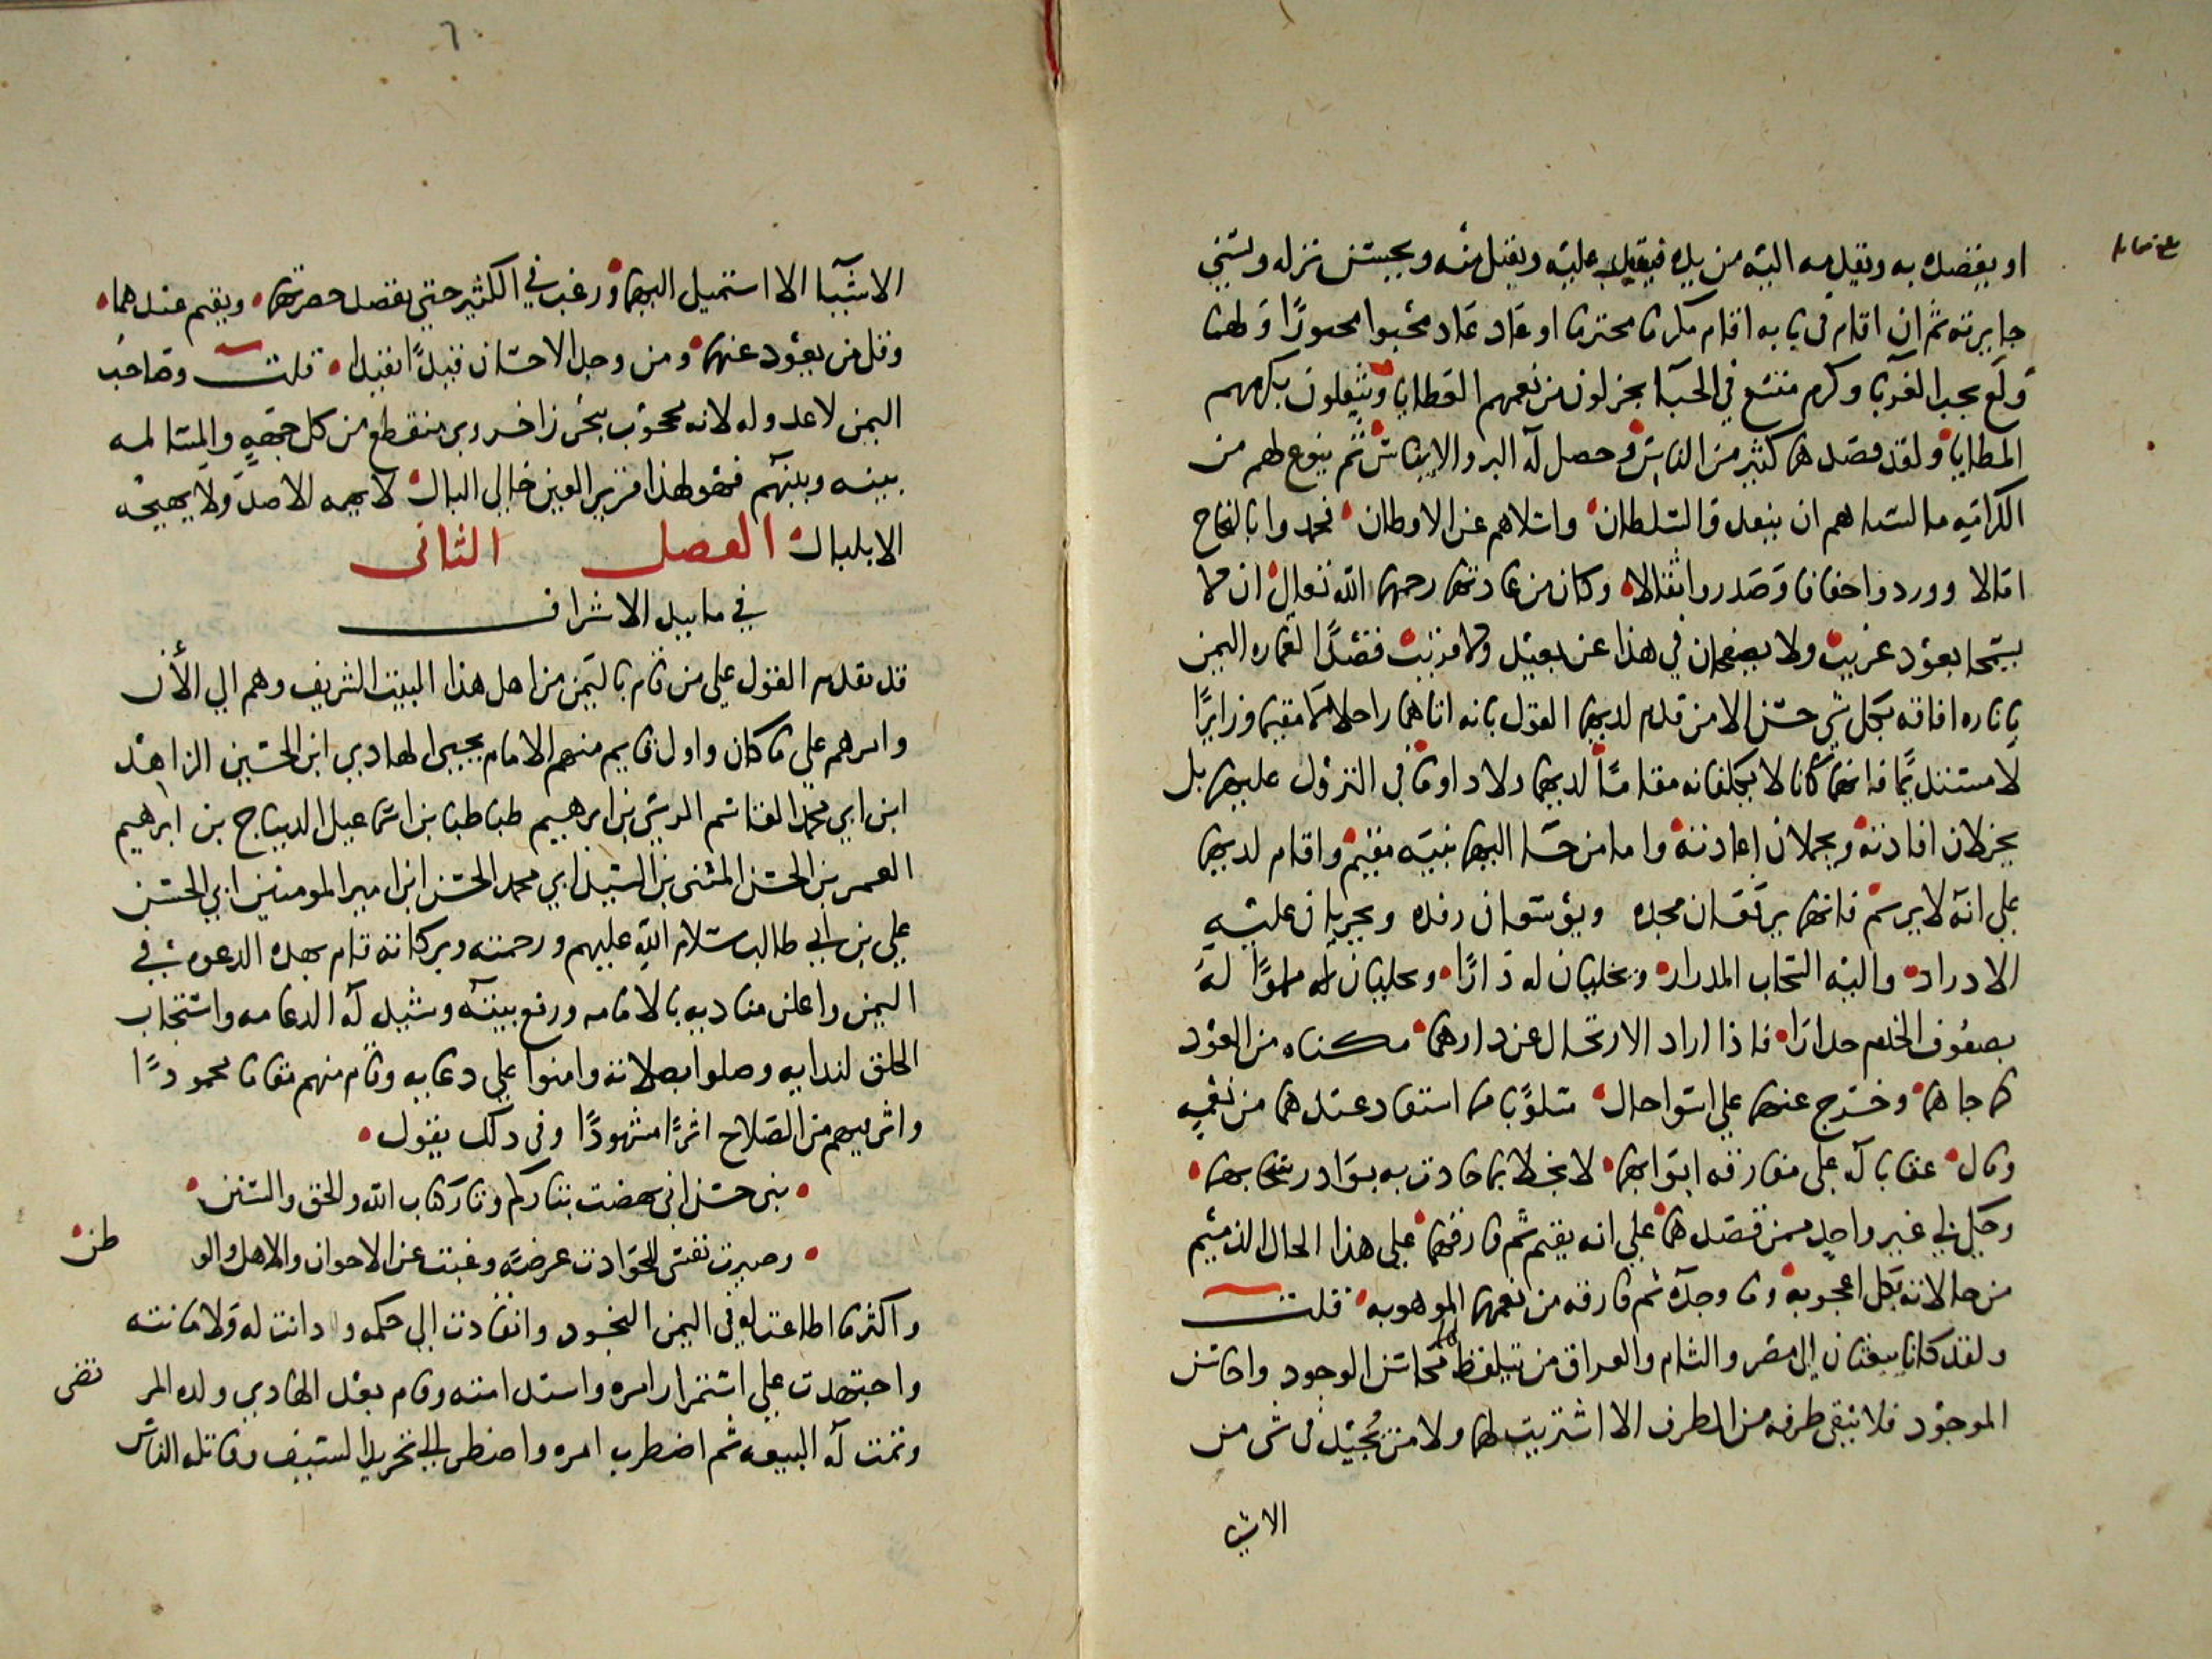 او يقصده به ويقدمه اليه من يده فيقبل عليه ويقبل منه ويحسن نزله ويسني
جايزته ثم ان اقام في بابه اقام مكرما محترما او عاد عاد محبوا محبورا ولهما
ولع بحب الغربا وكرم متسع في الحبا يجزلون من نعمهم العطايا ويثقلون بكرمهم
المطايا ولقد قصدهما كثير من الناس وحصل له البر والايناس ثم ينوع لهم من
الكرامه ما انساهم ان بعدوا السلطان واسلاهم عن الاوطان
ووردوا خفافا وصدروا اثقالا وكان من عادتهما رحمهما الله تعالى ان لا
يسمحا بعود غريب ولا يصفحان في هذا عن بعيد ولا قريب قصدا لعماره اليمن
باثاره افاقه بكل شي حسن الا من قدم لديهما القول بانه اتاهما راحلا لا مقيما وزايرا
لا مستديما فانهما كانا لا يكلفانه مقاما لديهما ولا دواما في النزول عليهما بل
يجزلان افادته ويجملان اعادته واما من جا اليهما بنيه مقيم واقام لديهما
على انه لا يريم فانهما يرفعان مجده ويوسعان رفده ويجريان عليه
الادرار واليه السحاب المدرار ويخليان له دارا
بصفوف الخدم فاذا اراد الارتحال عن دارهما مكناه من العود
كما جاهما وخرج عنهما على اسوا حال مسلوبا ما استفاد عندهما من نعمه
وقال عقابا له على مفارقه ابوابهما لا بخلا بما جادت به بوادر سحابهما
وحكى لي غير واحد ممن قصدهما على انه يقيم ثم فارقهما على هذا الحال الذميم
من حالاته بكل اعجوبه وما وجده ثم فارقه من نعمهما الموهوبه قلت
ولقد كانا يبعثان الى مصر والشام والعراق من يتلقط لهما محاسن الوجود واحاسن
الموجود فلا تبقى طرفه من الطرف الا اشتريت لهما ولا من يجيد في شي من
الاشيا
٦
الاشيا الا استميل اليهما ورغب في الكثير حتى يقصد حضرتهما ويقيم عندهما
وقل من يعود عنهما ومن وجد الاحسان قيدا تقيدا قلت وصاحب
اليمن لا عدو له لانه محجوب ببحر زاخر وبر منقطع من كل جهه والمسالمه
بينه وبينهم فهو لهذا قرير العين خالي البال لا يهمه الا صد ولا يهيجه
الا بلبال الفصل الثاني
في ما بيد الاشراف
قد تقدم القول على من قام باليمن من اهل هذا البيت الشريف وهم الي الأن
وامرهم على ما كان واول قايم منهم الامام يحيى الهادي ابن الحسين الزاهد
ابن ابي محمد القاسم الرسي بن ابرهيم طباطبا بن اسماعيل الديباج بن ابرهيم
الغمر بن الحسن المثنى بن السيد ابي محمد الحسن ابن امير المومنين ابي الحسن
علي بن ابي طالب سلام الله عليهم ورحمته وبركاته قام بهذه الدعوه في
اليمن واعلن مناديه بالامامه ورفع بيته وشيد له الدعامه واستجاب
الخلق لندايه وصلوا بصلاته وامنوا على دعايه وقام منهم مقاما محمودًا
واثر فيهم من الصلاح اثرًا مشهودًا وفي ذلك يقول
بني حسن اني نهضت بثاركم وثار كتاب الله والحق والسنن
وصيرت نفسي للحوادث عرضة وغبت عن الاخوان والاهل والو
طن
واكثر ما اطاعت له في اليمن النجود وانقادت الى حكمه ودانت له
واجتهدت على استمرار امره واستدامته وقام بعد الهادي ولده المر
تضى
وتمت له البيعه ثم اضطرب امره واضطر الى تجريد السيف وقاتله الناس